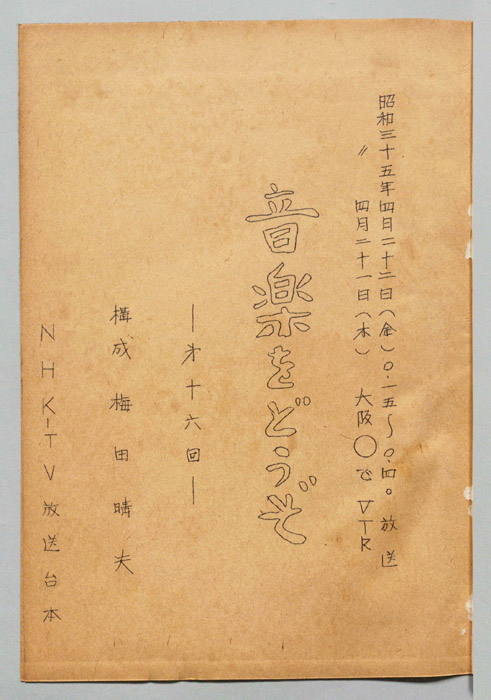 昭和三十五年四月二十二日（金）〇.一五～〇.四〇 放送
〃 四月二十一日（木） 大阪〇でVTR
音楽をどうぞ
―才十六回―
構成 梅田晴夫
NHK-TV放送台本